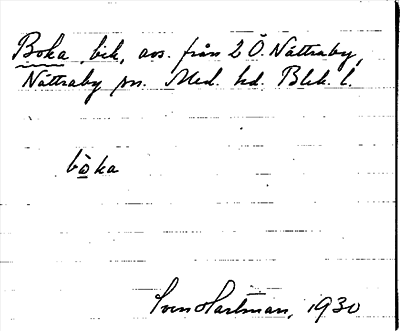 Boka, bik, avs. från 2 Ö. Nättraby,
Nättraby sn. Med. hd. Blek. l.
bòka
Sven Hartman, 1930